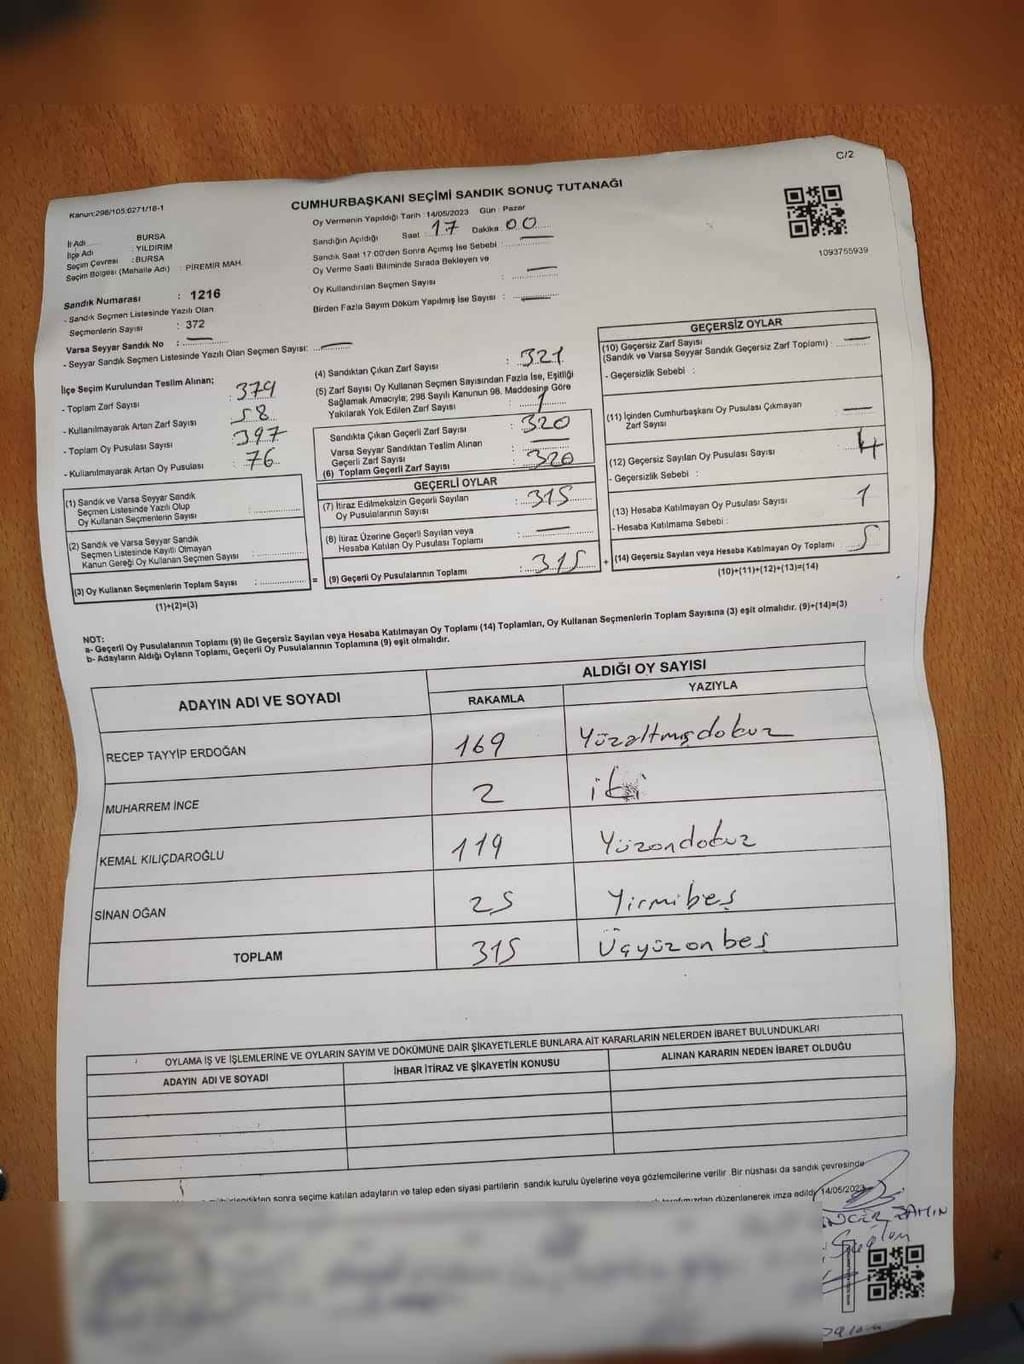 C/2
Kanun:298/105;6271/18-1
CUMHURBAŞKANI SEÇİMİ SANDIK SONUÇ TUTANAĞI
Oy Vermenin Yapıldığı Tarih : 14/05/2023 Gün : Pazar
İl Adı : BURSA
İlçe Adı : YILDIRIM
Seçim Çevresi : BURSA
Seçim Bölgesi (Mahalle Adı) : PİREMİR MAH.
Sandığın Açıldığı Saat : 17 Dakika : 00
Sandık Saat 17:00'den Sonra Açımış İse Sebebi :
Oy Verme Saati Bitiminde Sırada Bekleyen ve
Oy Kullandırılan Seçmen Sayısı :
Birden Fazla Sayım Döküm Yapılmış İse Sayısı :
1093755939
Sandık Numarası : 1216
- Sandık Seçmen Listesinde Yazılı Olan
Seçmenlerin Sayısı : 372
Varsa Seyyar Sandık No :
- Seyyar Sandık Seçmen Listesinde Yazılı Olan Seçmen Sayısı:
İlçe Seçim Kurulundan Teslim Alınan;
- Toplam Zarf Sayısı : 379
- Kullanılmayarak Artan Zarf Sayısı : 58
- Toplam Oy Pusulası Sayısı : 397
- Kullanılmayarak Artan Oy Pusulası : 76
(1) Sandık ve Varsa Seyyar Sandık
Seçmen Listesinde Yazılı Olup
Oy Kullanan Seçmenlerin Sayısı :
(2) Sandık ve Varsa Seyyar Sandık
Seçmen Listesinde Kayıtlı Olmayan
Kanun Gereği Oy Kullanan Seçmen Sayısı :
(3) Oy Kullanan Seçmenlerin Toplam Sayısı :
(1)+(2)=(3)
(4) Sandıktan Çıkan Zarf Sayısı : 321
(5) Zarf Sayısı Oy Kullanan Seçmen Sayısından Fazla İse, Eşitliği
Sağlamak Amacıyla; 298 Sayılı Kanunun 98. Maddesine Göre
Yakılarak Yok Edilen Zarf Sayısı : 1
Sandıkta Çıkan Geçerli Zarf Sayısı : 320
Varsa Seyyar Sandıktan Teslim Alınan
Geçerli Zarf Sayısı :
(6) Toplam Geçerli Zarf Sayısı : 320
GEÇERLİ OYLAR
(7) İtiraz Edilmeksizin Geçerli Sayılan
Oy Pusulalarının Sayısı : 315
(8) İtiraz Üzerine Geçerli Sayılan veya
Hesaba Katılan Oy Pusulası Toplamı :
= (9) Geçerli Oy Pusulalarının Toplamı : 315
GEÇERSİZ OYLAR
(10) Geçersiz Zarf Sayısı
(Sandık ve Varsa Seyyar Sandık Geçersiz Zarf Toplamı) :
- Geçersizlik Sebebi :
(11) İçinden Cumhurbaşkanı Oy Pusulası Çıkmayan
Zarf Sayısı :
(12) Geçersiz Sayılan Oy Pusulası Sayısı : 4
- Geçersizlik Sebebi :
(13) Hesaba Katılmayan Oy Pusulası Sayısı 1
- Hesaba Katılmama Sebebi :
+ (14) Geçersiz Sayılan veya Hesaba Katılmayan Oy Toplamı 5
(10)+(11)+(12)+(13)=(14)
NOT:
a- Geçerli Oy Pusulalarının Toplamı (9) ile Geçersiz Sayılan veya Hesaba Katılmayan Oy Toplamı (14) Toplamları, Oy Kullanan Seçmenlerin Toplam Sayısına (3) eşit olmalıdır. (9)+(14)=(3)
b- Adayların Aldığı Oyların Toplamı, Geçerli Oy Pusulalarının Toplamına (9) eşit olmalıdır.
ADAYIN ADI VE SOYADI
ALDIĞI OY SAYISI
RAKAMLA YAZIYLA
RECEP TAYYİP ERDOĞAN 169 Yüzaltmışdokuz
MUHARREM İNCE 2 iki
KEMAL KILIÇDAROĞLU 119 Yüzondokuz
SİNAN OĞAN 25 Yirmibeş
TOPLAM 315 Üçyüzonbeş
OYLAMA İŞ VE İŞLEMLERİNE VE OYLARIN SAYIM VE DÖKÜMÜNE DAİR ŞİKAYETLERLE BUNLARA AİT KARARLARIN NELERDEN İBARET BULUNDUKLARI
ADAYIN ADI VE SOYADI İHBAR İTİRAZ VE ŞİKAYETİN KONUSU ALINAN KARARIN NEDEN İBARET OLDUĞU
sonra seçime katılan adayların ve talep eden siyasi partilerin sandık kurulu üyelerine veya gözlemcilerine verilir. Bir nüshası da sandık çevresinde
düzenlenerek imza edildi. 14/05/2023